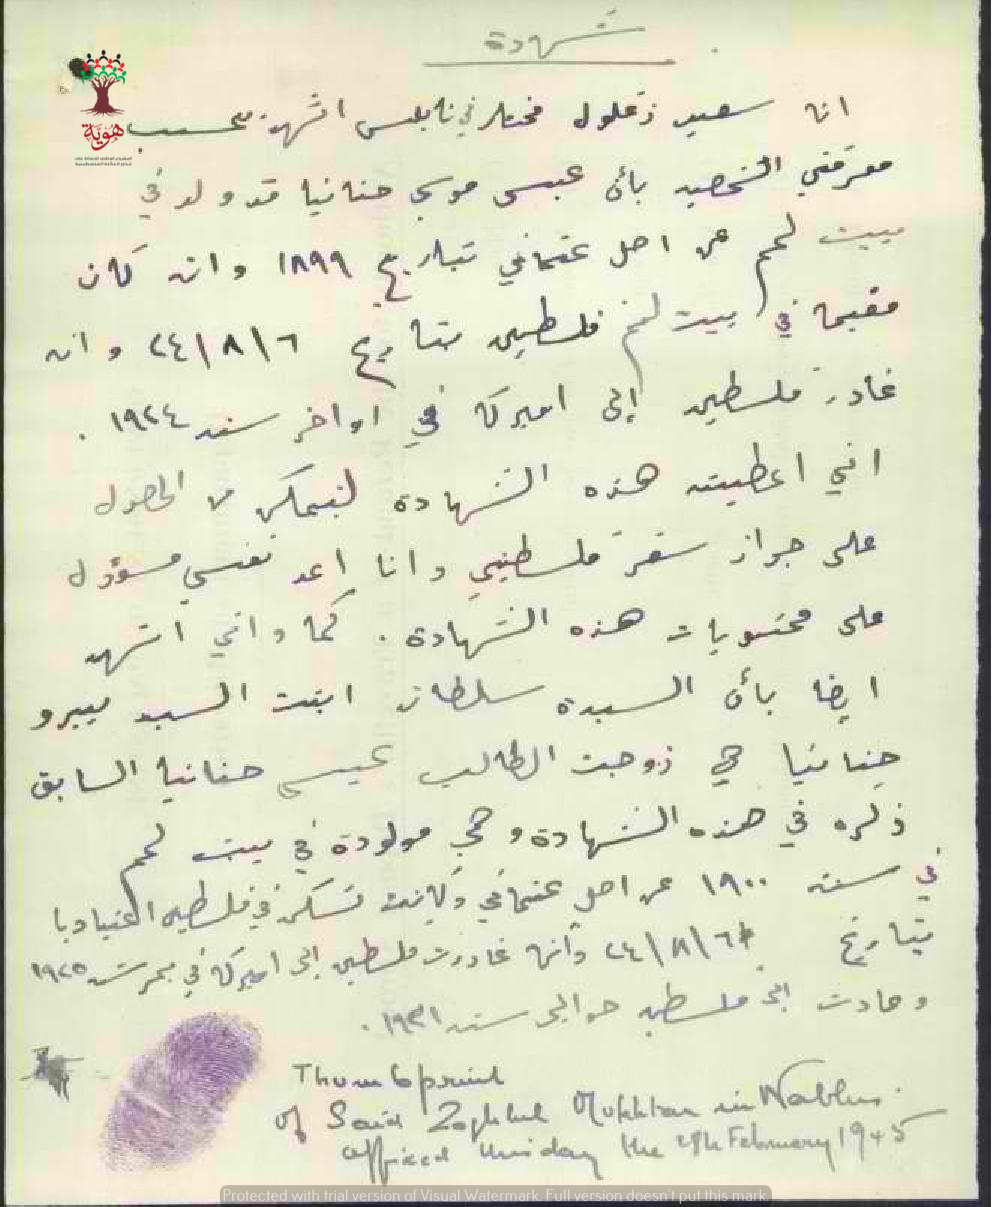 شهادة
هوية
انا سعيد زغلول مختار في نابلس اشهد بحسب
معرفتي الشخصيه بأن عيسى موسى حنانيا قد ولد في
بيت لحم من اصل عثماني بتاريخ ١٨٩٩ وانه كان
مقيما في بيت لحم فلسطين بتاريخ ٢٤/٨/٦ وانه
غادر فلسطين إلى اميركا في اواخر سنه ١٩٢٤ .
اني اعطيته هذه الشهادة ليتمكن من الحصول
على جواز سفر فلسطيني وانا اعد نفسي مسؤول
على محتويات هذه الشهادة . كما واني اشهد
ايضا بأن السيدة سلطانه ابنت السيد بيرو
حنانيا هي زوجت الطالب عيسى حنانيا السابق
ذكره في هذه الشهادة وهي مولودة في بيت لحم
في سنه ١٩٠٠ من اصل عثماني وكانت تسكن في فلسطين اعتياديا
بتاريخ ٢٤/٨/٦ وأنها غادرت فلسطين إلى اميركا في بحر سنه ١٩٢٥
وعادت الى فلسطين حوالي سنه ١٩٣١ .
Thumbprint
of Said Zaghlul Mukhtar in Nablus.
affixed this day the February 1945
Protected with trial version of Visual Watermark. Full version doesn't put this mark.